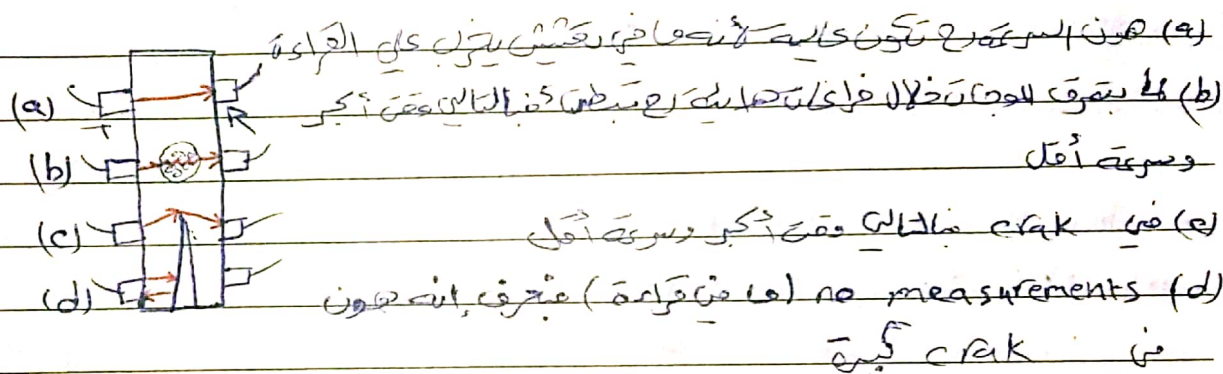 (a) هون السرعة رح تكون عالية لأنه ما في تعشيش يخرب على القراءة
(b) لما بتمرق الموجات خلال فراغات هاي رح تبطئ بالتالي وقت أكبر
وسرعة أقل
(c) في crak فبالتالي وقت أكبر وسرعة أقل
(d) no measurements (ما في قراءة) بنعرف إنه هون
في crak كبيرة
(a) T R
(b)
(c)
(d)